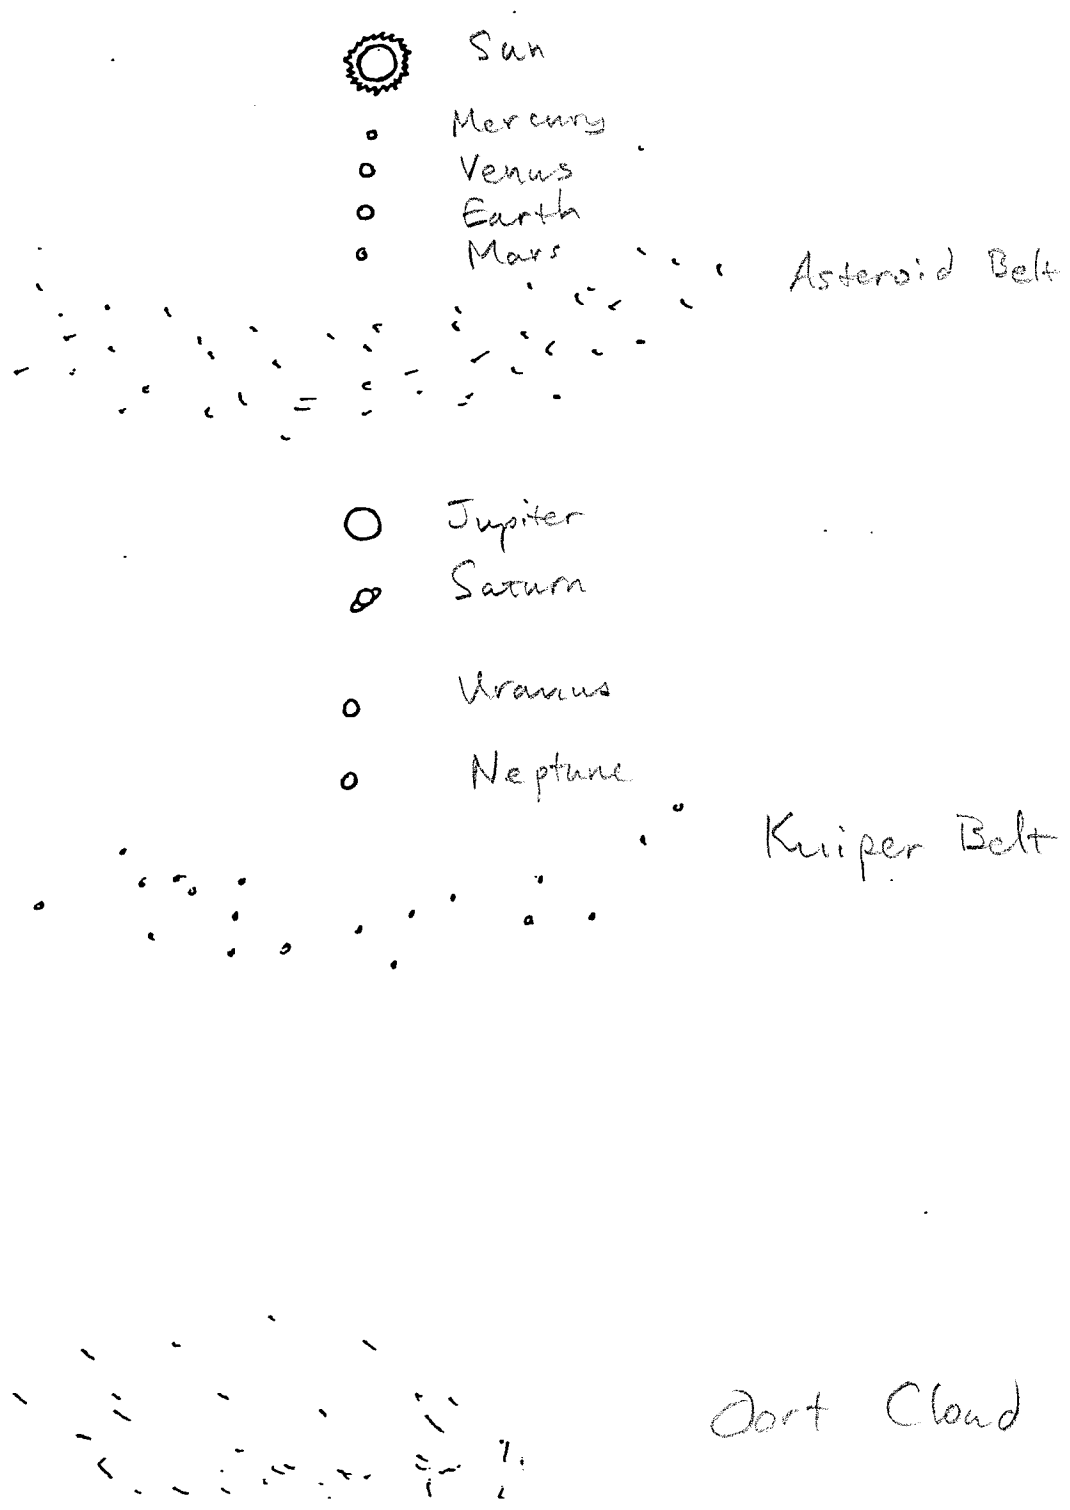 Sun
Mercury
Venus
Earth
Mars
Asteroid Belt
Jupiter
Saturn
Uranus
Neptune
Kuiper Belt
Oort Cloud